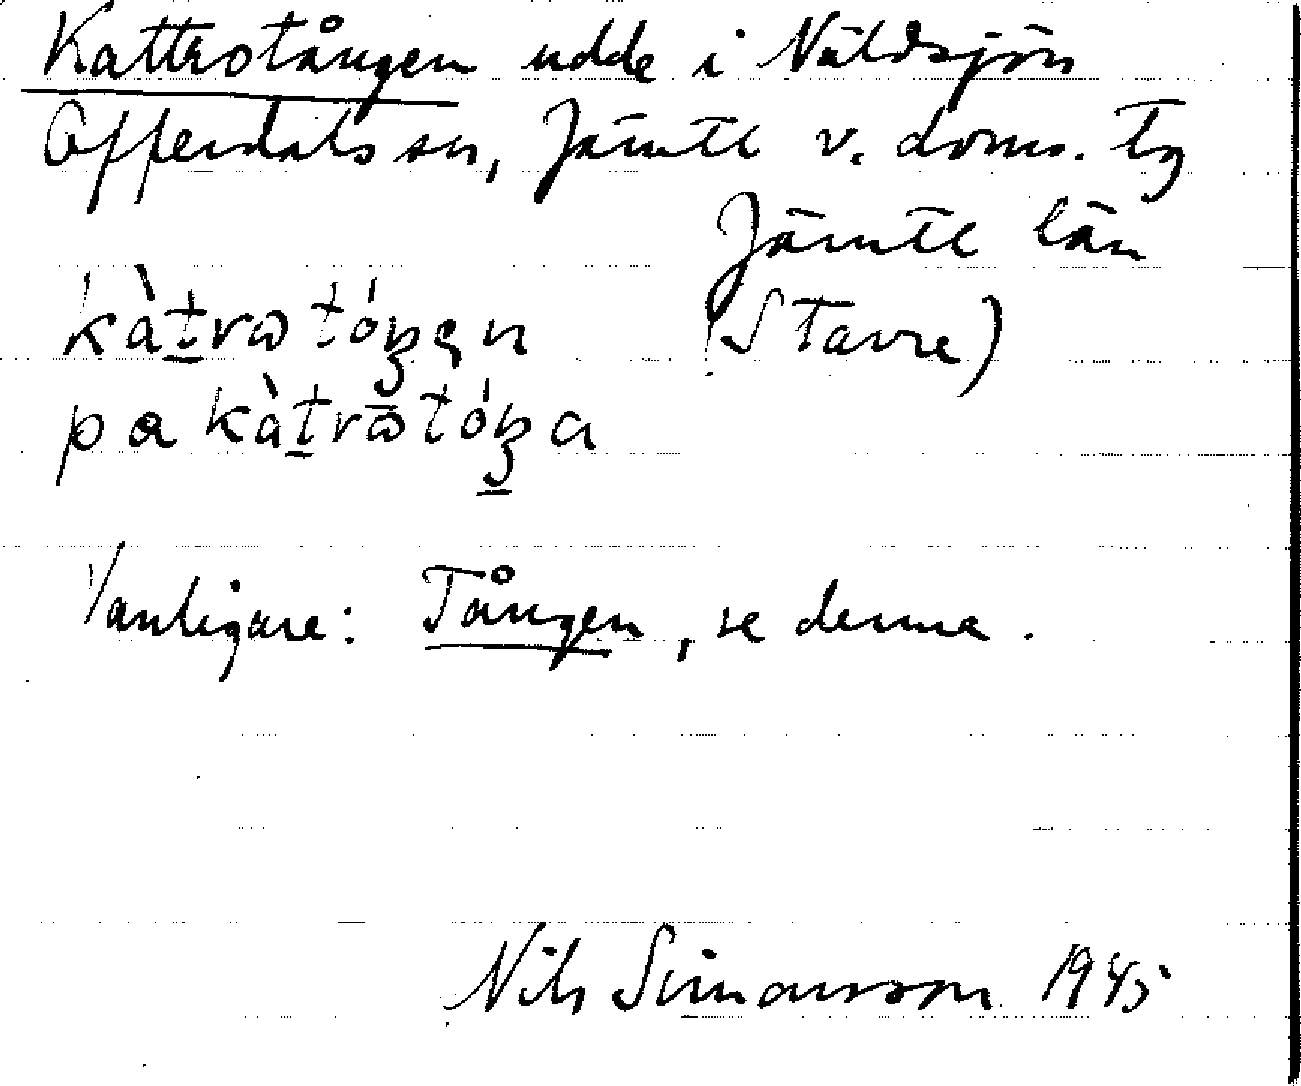 Kattrotången udde i Näldsjön
Offerdals sn, Jämtl v. doms. tg
Jämtl län
kàt̲rωtóŋęn (Stavre)
pa kàt̲rωtóŋa
Vanligare: Tången, se denna.
Nils Simonsson 1945